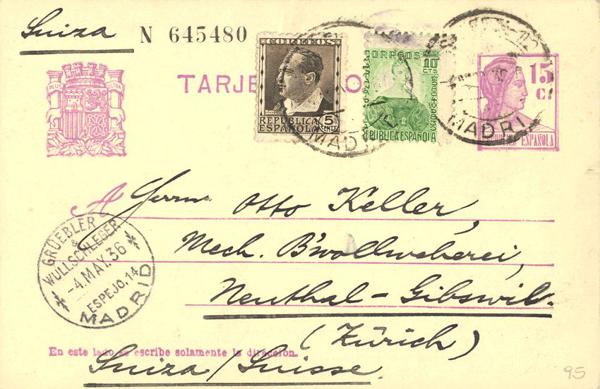 Suiza
N 645480
TARJE
CORREOS
5 CENTS
REPUBLICA ESPAÑOLA
CORREOS
10 CTS
REPUBLICA ESPAÑOLA
15 Cs
ESPAÑOLA
MADRI
MADRI
A Herrn Otto Keller,
Mech. B'wollweberei,
Neuthal-Gibswil.
(Zürich)
GRUEBLER & WULLSCHLEGER
-4.MAY.36
ESPEJO,14
MADRID
En este lado se escribe solamente la dirección.
Suiza/Suisse.
95